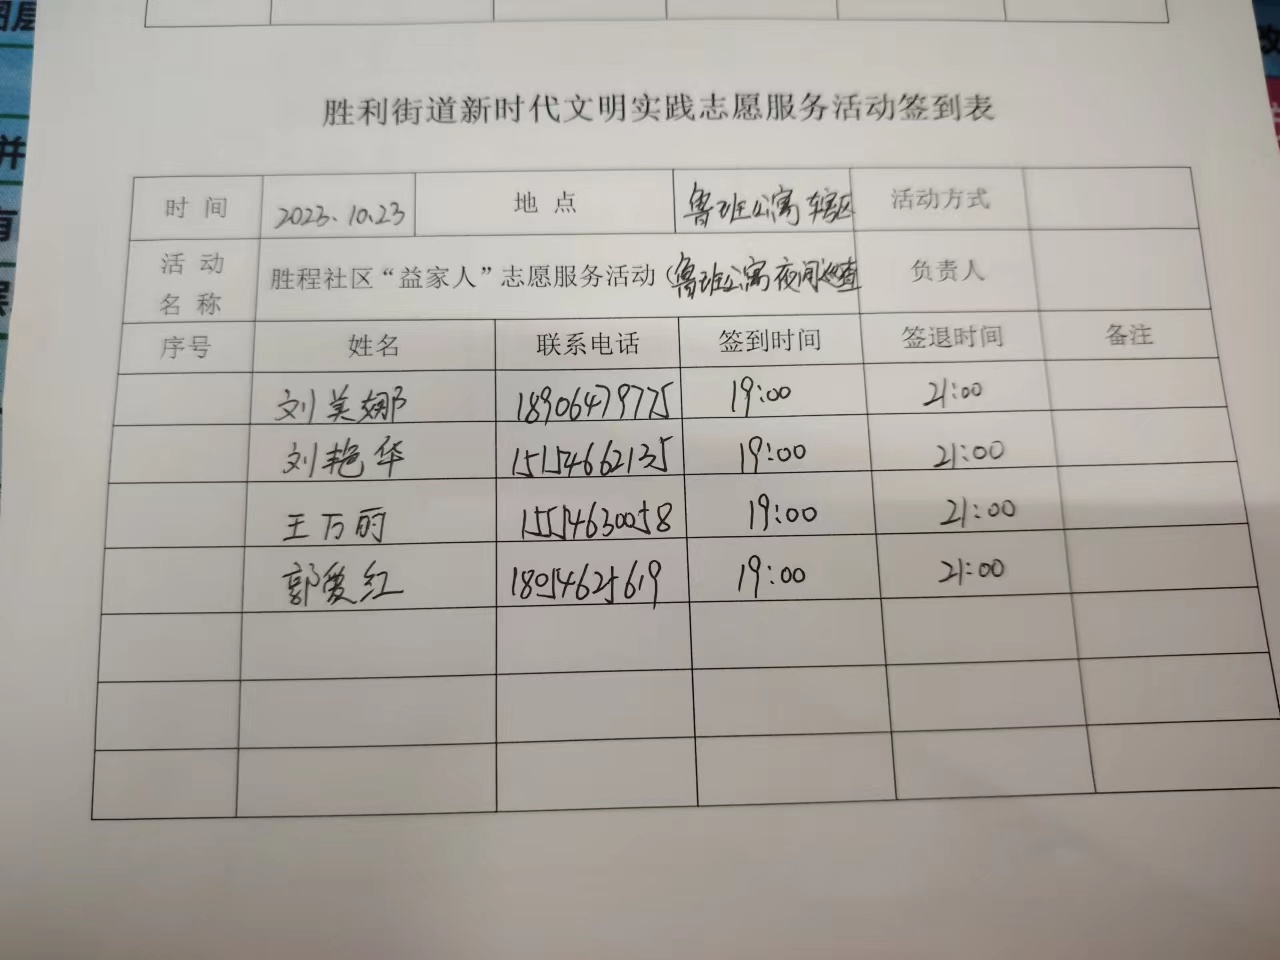 胜利街道新时代文明实践志愿服务活动签到表
时间 2023.10.23 地点 鲁班公寓辖区 活动方式
活动名称 胜程社区“益家人”志愿服务活动（鲁班公寓夜间巡查 负责人
序号 姓名 联系电话 签到时间 签退时间 备注
刘美娜 18906479775 19:00 21:00
刘艳华 15154662135 19:00 21:00
王万丽 15514630058 19:00 21:00
郭爱红 18054625619 19:00 21:00